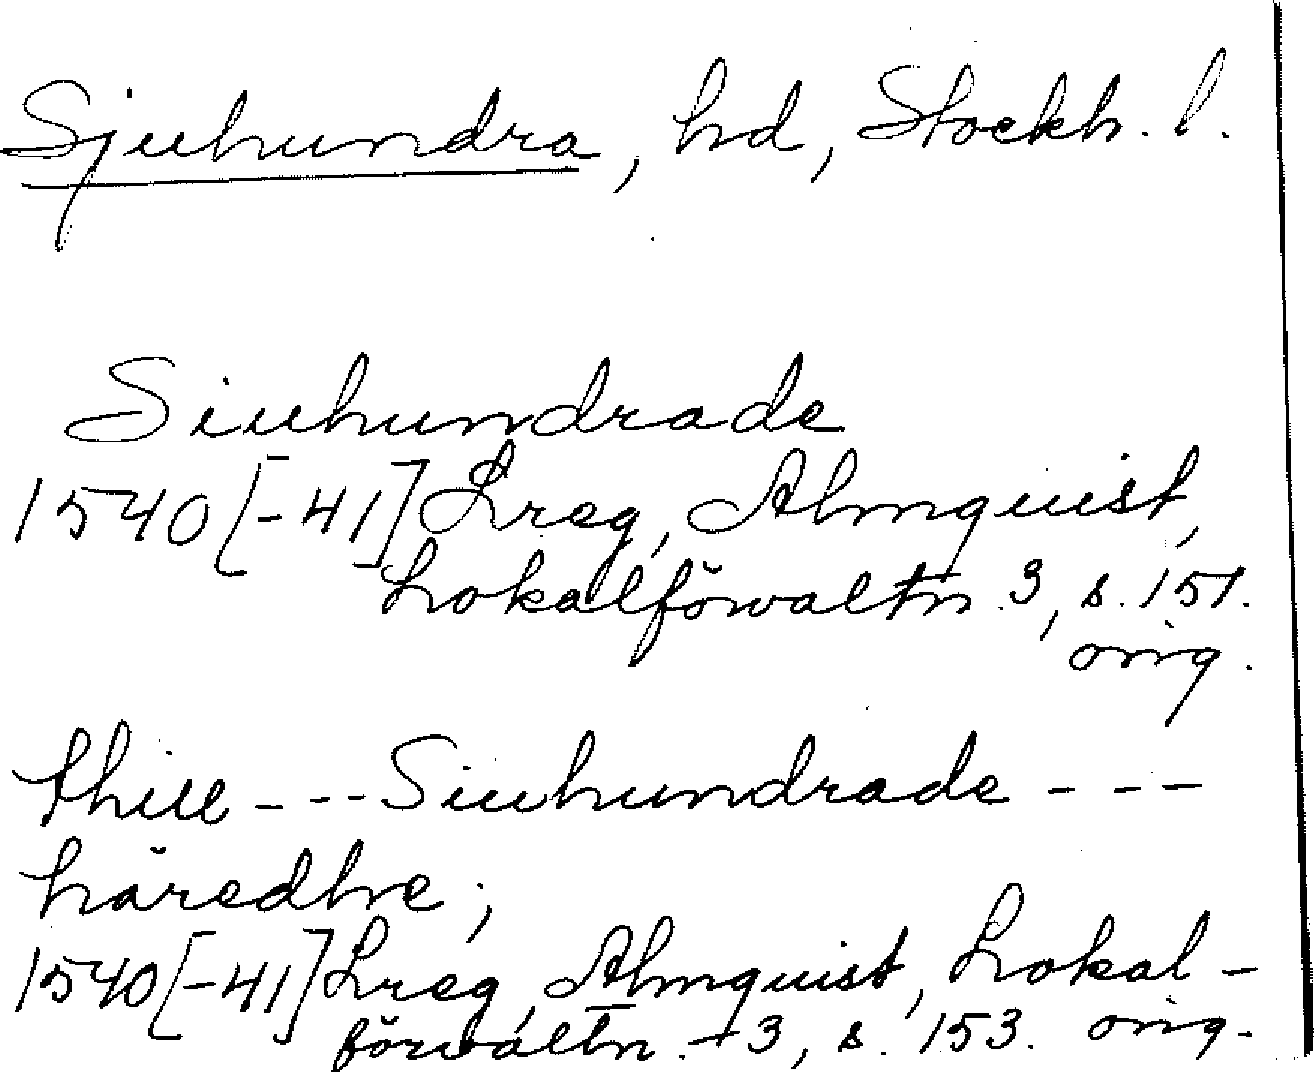 Sjuhundra, hd, Stockh. l.
Siuhundrade
1540[-41] Lreg, Almquist,
Lokalförvaltn. 3, s. 151.
orig.
thill --- Siuhundrade ---
häredhe,
1540[-41] Lreg, Almquist, Lokal-
förvaltn. 3, s. 153. orig.